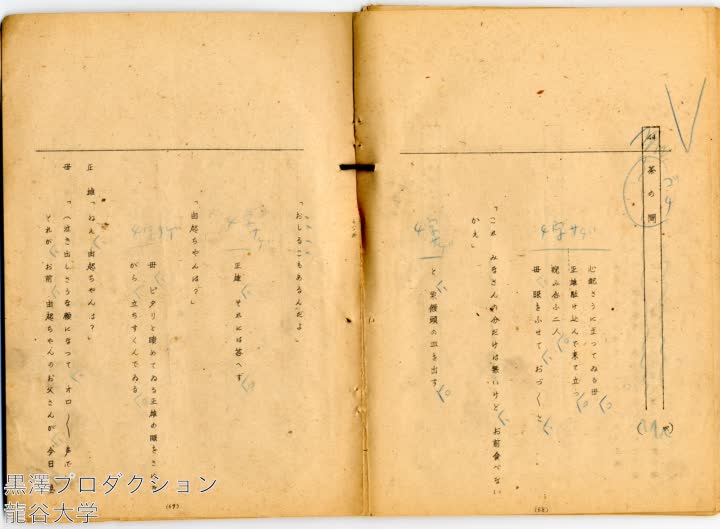 44
茶の間
心配さうに坐つてゐる母
正雄駈け込んで来て立つ
睨み合ふ二人
母 眼をふせて おづ〱と
「これ みなさんの分だけは無いけど お前食べない
かえ」
と 菓饅頭の皿を出す
(68)
「おしるこもあるんだよ」
正雄 それには答へず
「由起ちやんは?」
母 ピタリと瞶めてゐる正雄の眼をさけな
がら 立ちすくんでゐる
正雄「ねえ 由起ちやんは?」
母 「(泣き出しさうな顔になつて、オロ〱声で
それが お前 由起ちやんのお父さんが 今日
(69)
4字サゲ
4字サゲ
4字サゲ
4字サゲ
黒澤プロダクション
龍谷大学